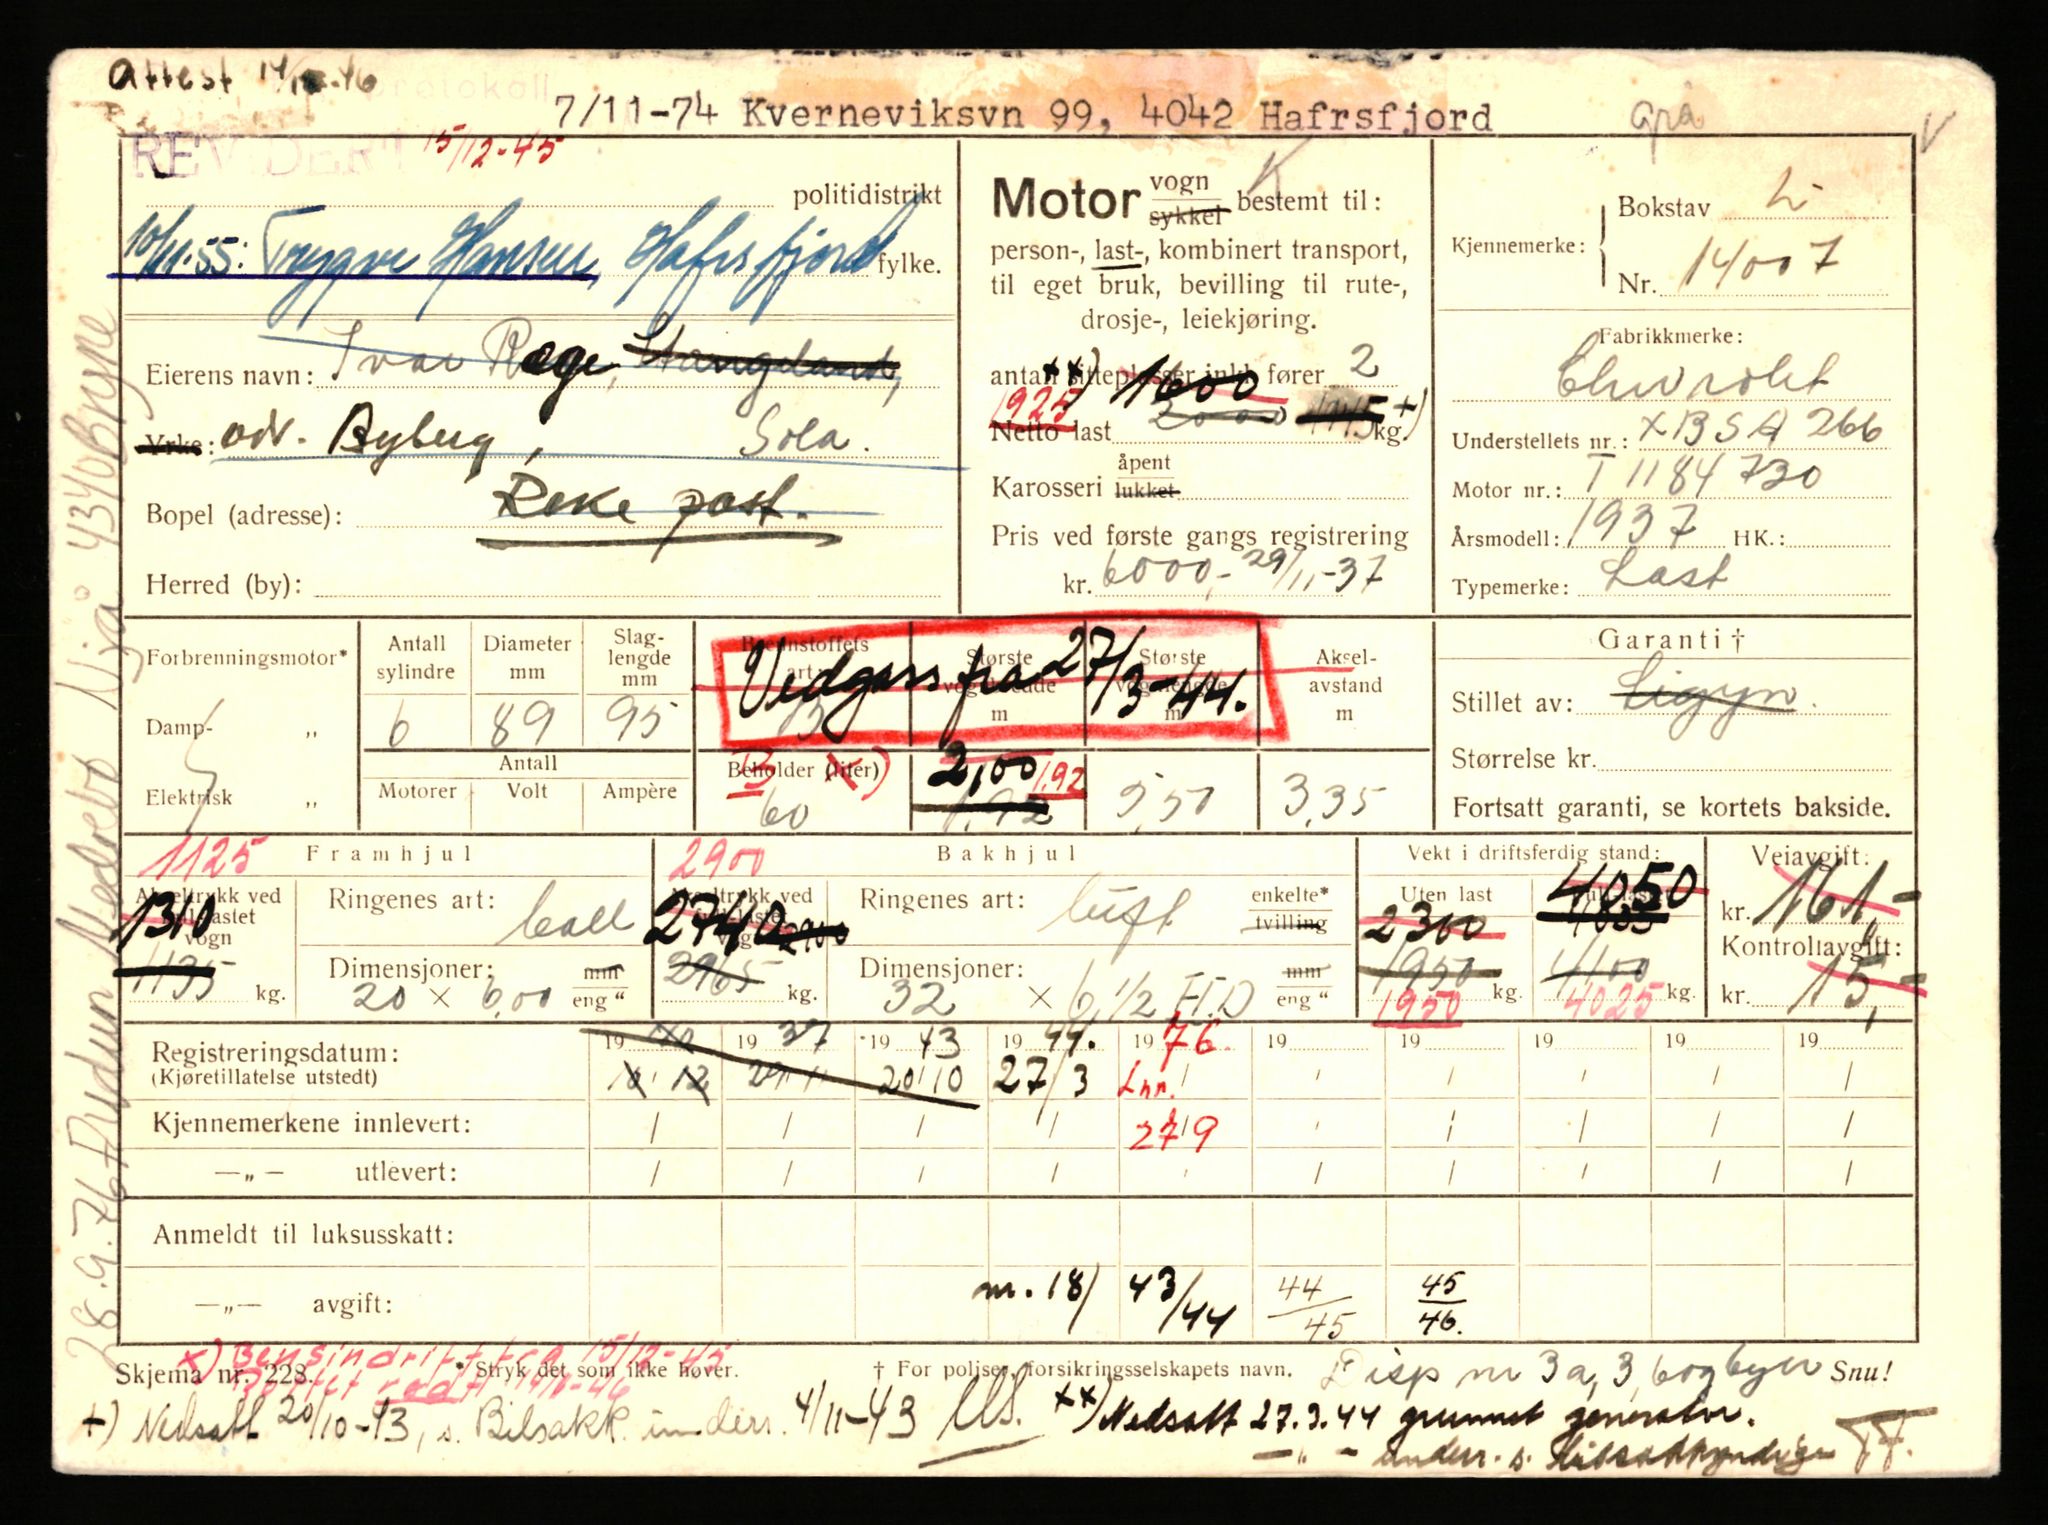 Attest
7/11-74 Kverneviksvn 99, 4042 Hafrsfjord
Grå
V
REVIDERT 15/12-45
politidistrikt
10/11-55: Trygve Hansen, Hafrsfjord fylke.
Eierens navn: Ivar Rege, Stangeland,
Yrke: adr. Byberg, Sola.
Bopel (adresse): Reke post.
Herred (by):
K
Motor vogn sykkel bestemt til:
person-, last-, kombinert transport,
til eget bruk, bevilling til rute-,
drosje-, leiekjøring.
antall sitteplasser inkl. fører 2
xx) 1600
1925
Netto last 2000 1745 kg. +)
Karosseri åpent lukket
Pris ved første gangs registrering
kr. 6000,- 29/11-37
Kjennemerke: Bokstav L
Nr. 14007
Fabrikkmerke:
Chevrolet
Understellets nr.: XBSA 266
Motor nr.: T 1184730
Årsmodell: 1937 HK.:
Typemerke: Last
Forbrenningsmotor*
Damp- „
Elektrisk „
Antall sylindre 6
Diameter mm 89
Slaglengde mm 95
Antall
Motorer Volt Ampère
Brennstoffets art: B
Vedgass fra 27/3-44.
B x)
Beholder (liter) 60
Største vognbredde m 2,00 1,92 1,92
Største vognlengde m 5,50
Aksel-avstand m 3,35
Garanti †
Stillet av: Sigyn.
Størrelse kr.
Fortsatt garanti, se kortets bakside.
1125 Framhjul
Akseltrykk ved full-lastet vogn 1310 1135 kg.
Ringenes art: ball
Dimensjoner: 20 x 6,00 mm eng "
2900 Bakhjul
Akseltrykk ved full-lastet vogn 2740 2900 2965 kg.
Ringenes art: luft enkelte* tvilling
Dimensjoner: 32 x 6 1/2 H.D mm eng "
Vekt i driftsferdig stand:
Uten last 2300 1950 1950 kg.
Full lastet 4050 4100 4025 kg.
Veiavgift:
kr. 161,-
Kontrollavgift:
kr. 15,-
Registreringsdatum: 19 19 37 19 43 19 44. 19 76 19 19 19 19 19
(Kjøretillatelse utstedt) 29/11 20/10 27/3 Lnr.
Kjennemerkene innlevert: 27/9
—„— utlevert:
Anmeldt til luksusskatt:
—„— avgift: nr. 18/ 43/44 44/45 45/46.
28.9.76 Audun Nedrebø Njå 4340 Bryne
Skjema nr. 228. * Stryk det som ikke høver. † For poliser, forsikringsselskapets navn. Disp nr 3a, 3, Snu!
x) Bensindrift fra 15/12-45
+) Nedsatt 20/10-43, s. Bilsakk. 4/11-43 xx) Nedsatt 27.3.44 grunnet generator.
— „ — s. bilsakkyndige